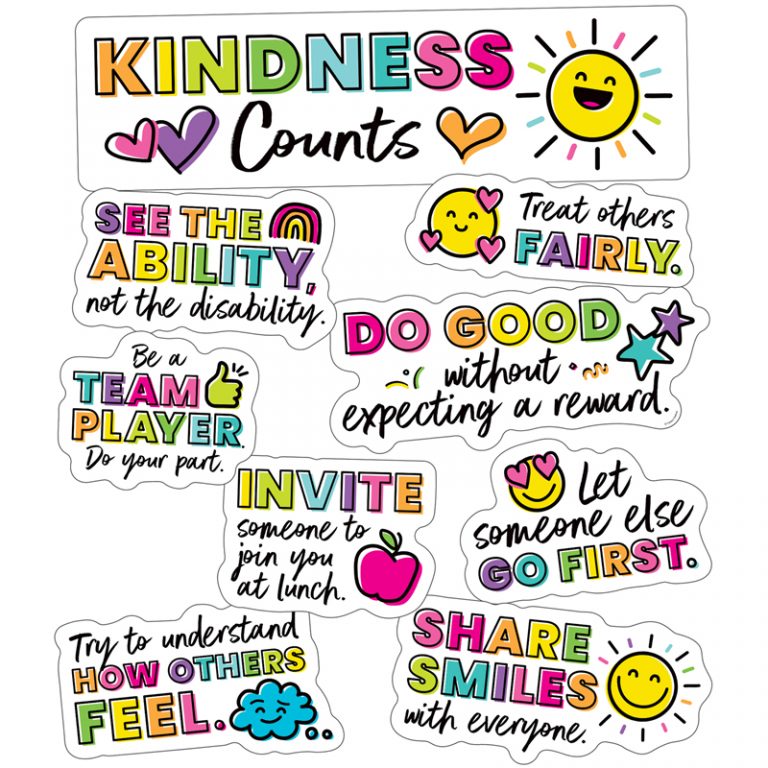 KINDNESS
Counts
SEE THE
ABILITY,
not the disability.
Treat others
FAIRLY.
DO GOOD
without
expecting a reward.
Be a
TEAM
PLAYER.
Do your part.
INVITE
someone to
join you
at lunch.
Let
someone else
GO FIRST.
Try to understand
HOW OTHERS
FEEL.
SHARE
SMILES
with everyone.